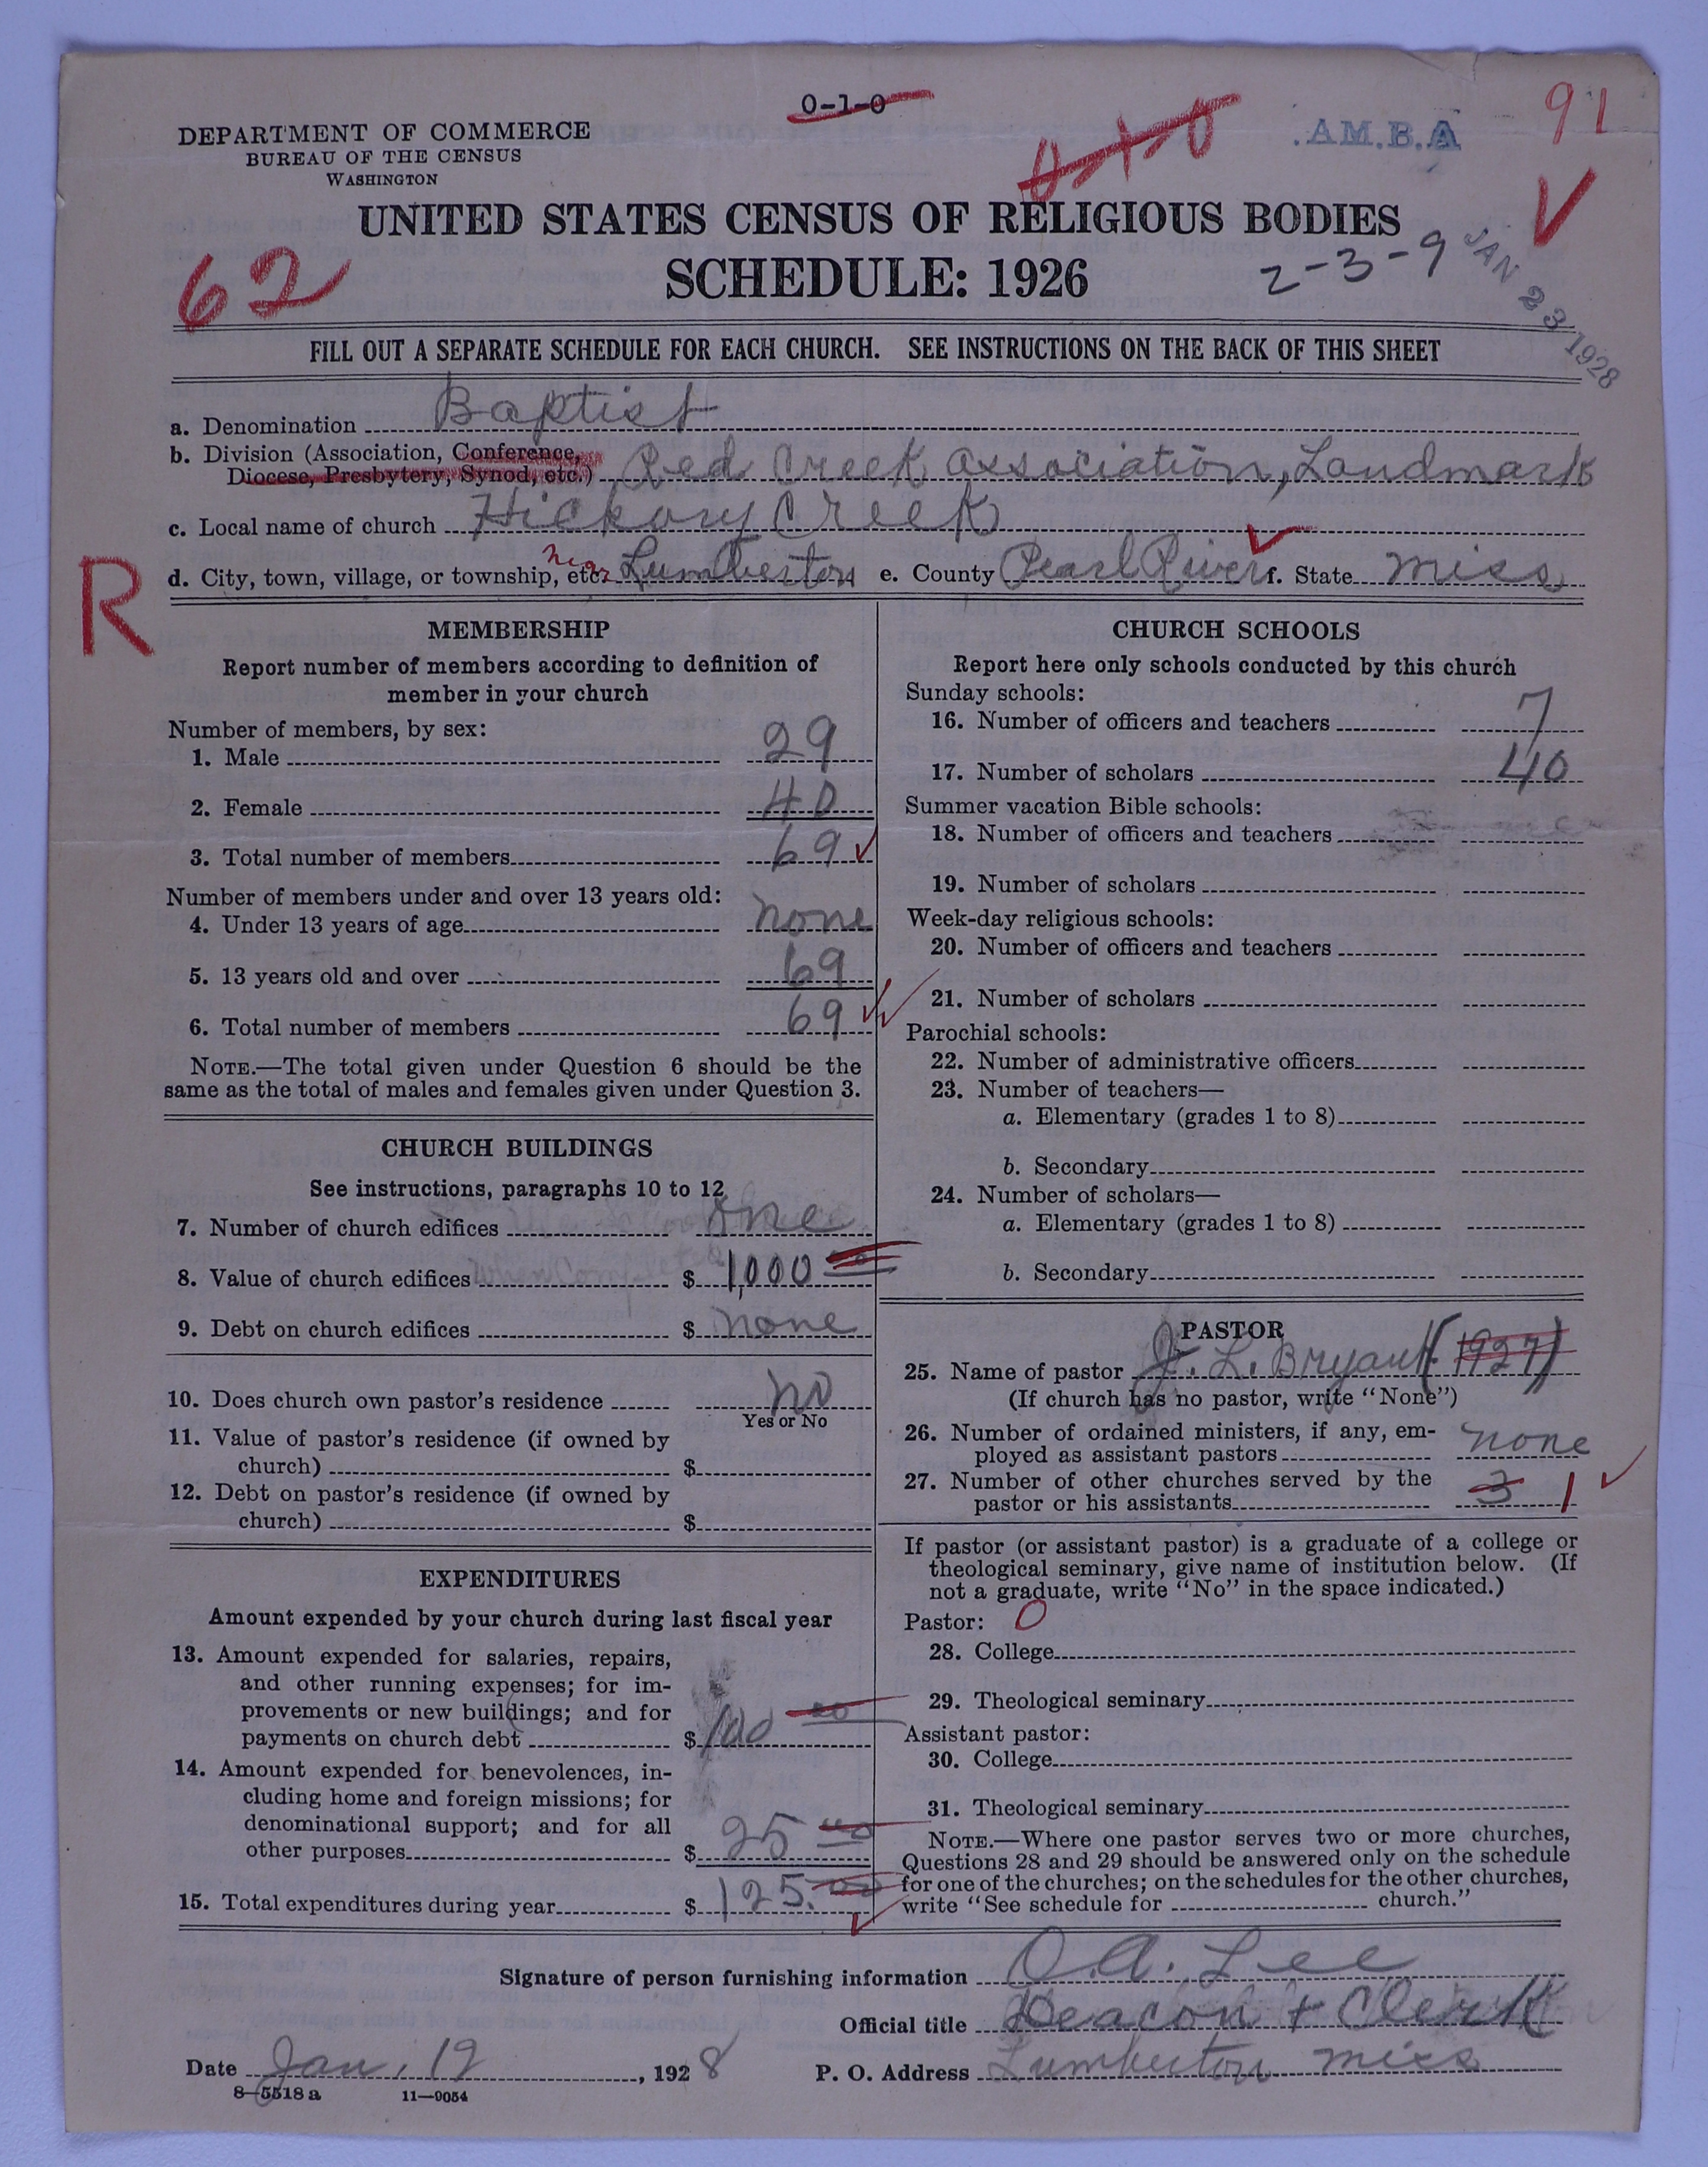 0-1-0
DEPARTMENT OF COMMERCE
BUREAU OF THE CENSUS
WASHINGTON
0-1-0
AM.B.A
91
UNITED STATES CENSUS OF RELIGIOUS BODIES
SCHEDULE: 1926
62
2-3-9
JAN 23 1928
FILL OUT A SEPARATE SCHEDULE FOR EACH CHURCH. SEE INSTRUCTIONS ON THE BACK OF THIS SHEET
a. Denomination Baptist
b. Division (Association, Conference,
Diocese, Presbytery, Synod, etc.) Red Creek Association, Landmark
c. Local name of church Hickory Creek
R
d. City, town, village, or township, etc. near Lumberton e. County Pearl River f. State Miss
MEMBERSHIP
Report number of members according to definition of
member in your church
Number of members, by sex:
1. Male 29
2. Female 40
3. Total number of members 69
Number of members under and over 13 years old:
4. Under 13 years of age none
5. 13 years old and over 69
6. Total number of members 69
NOTE.—The total given under Question 6 should be the
same as the total of males and females given under Question 3.
CHURCH BUILDINGS
See instructions, paragraphs 10 to 12
7. Number of church edifices one
8. Value of church edifices when Completed $ 1,000 00
9. Debt on church edifices $ none
10. Does church own pastor's residence no
Yes or No
11. Value of pastor's residence (if owned by
church) $
12. Debt on pastor's residence (if owned by
church) $
EXPENDITURES
Amount expended by your church during last fiscal year
13. Amount expended for salaries, repairs,
and other running expenses; for im-
provements or new buildings; and for
payments on church debt $ 100 00
14. Amount expended for benevolences, in-
cluding home and foreign missions; for
denominational support; and for all
other purposes $ 25 00
15. Total expenditures during year $ 125.00
CHURCH SCHOOLS
Report here only schools conducted by this church
Sunday schools:
16. Number of officers and teachers 7
17. Number of scholars 40
Summer vacation Bible schools:
18. Number of officers and teachers
19. Number of scholars
Week-day religious schools:
20. Number of officers and teachers
21. Number of scholars
Parochial schools:
22. Number of administrative officers
23. Number of teachers—
a. Elementary (grades 1 to 8)
b. Secondary
24. Number of scholars—
a. Elementary (grades 1 to 8)
b. Secondary
PASTOR
25. Name of pastor J. L. Bryant (1927)
(If church has no pastor, write "None")
26. Number of ordained ministers, if any, em-
ployed as assistant pastors none
27. Number of other churches served by the
pastor or his assistants 3 1
If pastor (or assistant pastor) is a graduate of a college or
theological seminary, give name of institution below. (If
not a graduate, write "No" in the space indicated.)
Pastor: 0
28. College
29. Theological seminary
Assistant pastor:
30. College
31. Theological seminary
NOTE.—Where one pastor serves two or more churches,
Questions 28 and 29 should be answered only on the schedule
for one of the churches; on the schedules for the other churches,
write "See schedule for church."
Signature of person furnishing information O. A. Lee
Official title Deacon + Clerk
Date Jan, 19, 1928 P. O. Address Lumberton Miss
8-5518 a 11-9054